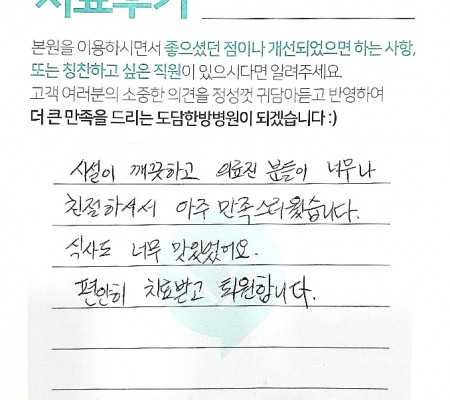 치료후기
본원을 이용하시면서 좋으셨던 점이나 개선되었으면 하는 사항,
또는 칭찬하고 싶은 직원이 있으시다면 알려주세요.
고객 여러분의 소중한 의견을 정성껏 귀담아듣고 반영하여
더 큰 만족을 드리는 도담한방병원이 되겠습니다 :)
시설이 깨끗하고 의료진 분들이 너무나
친절하셔서 아주 만족스러웠습니다.
식사도 너무 맛있었어요.
편안히 치료받고 퇴원합니다.